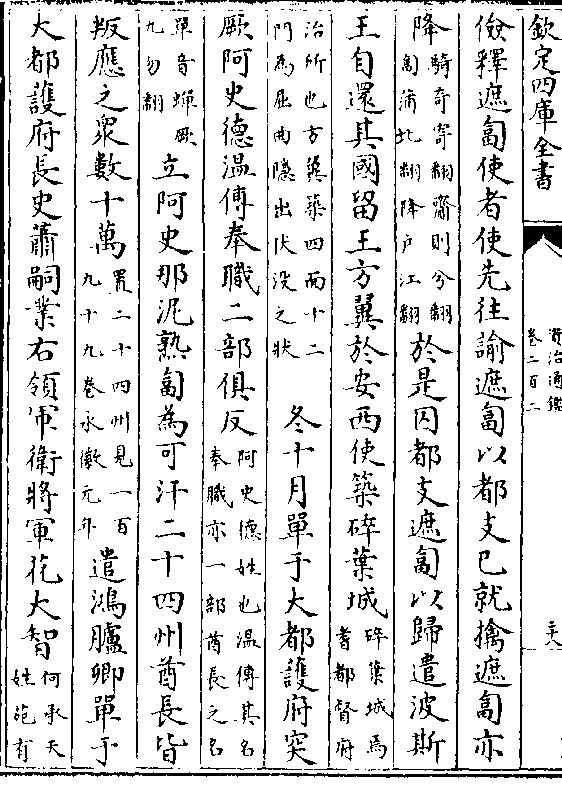 欽定四庫全書
資治通鑑
卷二百二
三十八
儉釋遮匐使者使先往諭遮匐以都支已就擒遮匐亦
降
騎奇寄翻齎則兮翻
匐蒲北翻降戶江翻
於是囚都支遮匐以歸遣波斯
王自還其國留王方翼於安西使築碎葉城
碎葉城焉
耆都督府
治所也方翼築四面十二
門為屈曲隱出伏没之狀
冬十月單于大都護府突
厥阿史德温傅奉職二部俱反
阿史德姓也温傅其名
奉職亦一部酋長之名
單音蟬厥
九勿翻
立阿史那泥熟匐為可汗二十四州酋長皆
叛應之眾數十萬
置二十四州見一百
九十九卷永徽元年
遣鴻臚卿單于
大都護府長史蕭嗣業右領軍衛將軍花大智
何承天
姓苑有